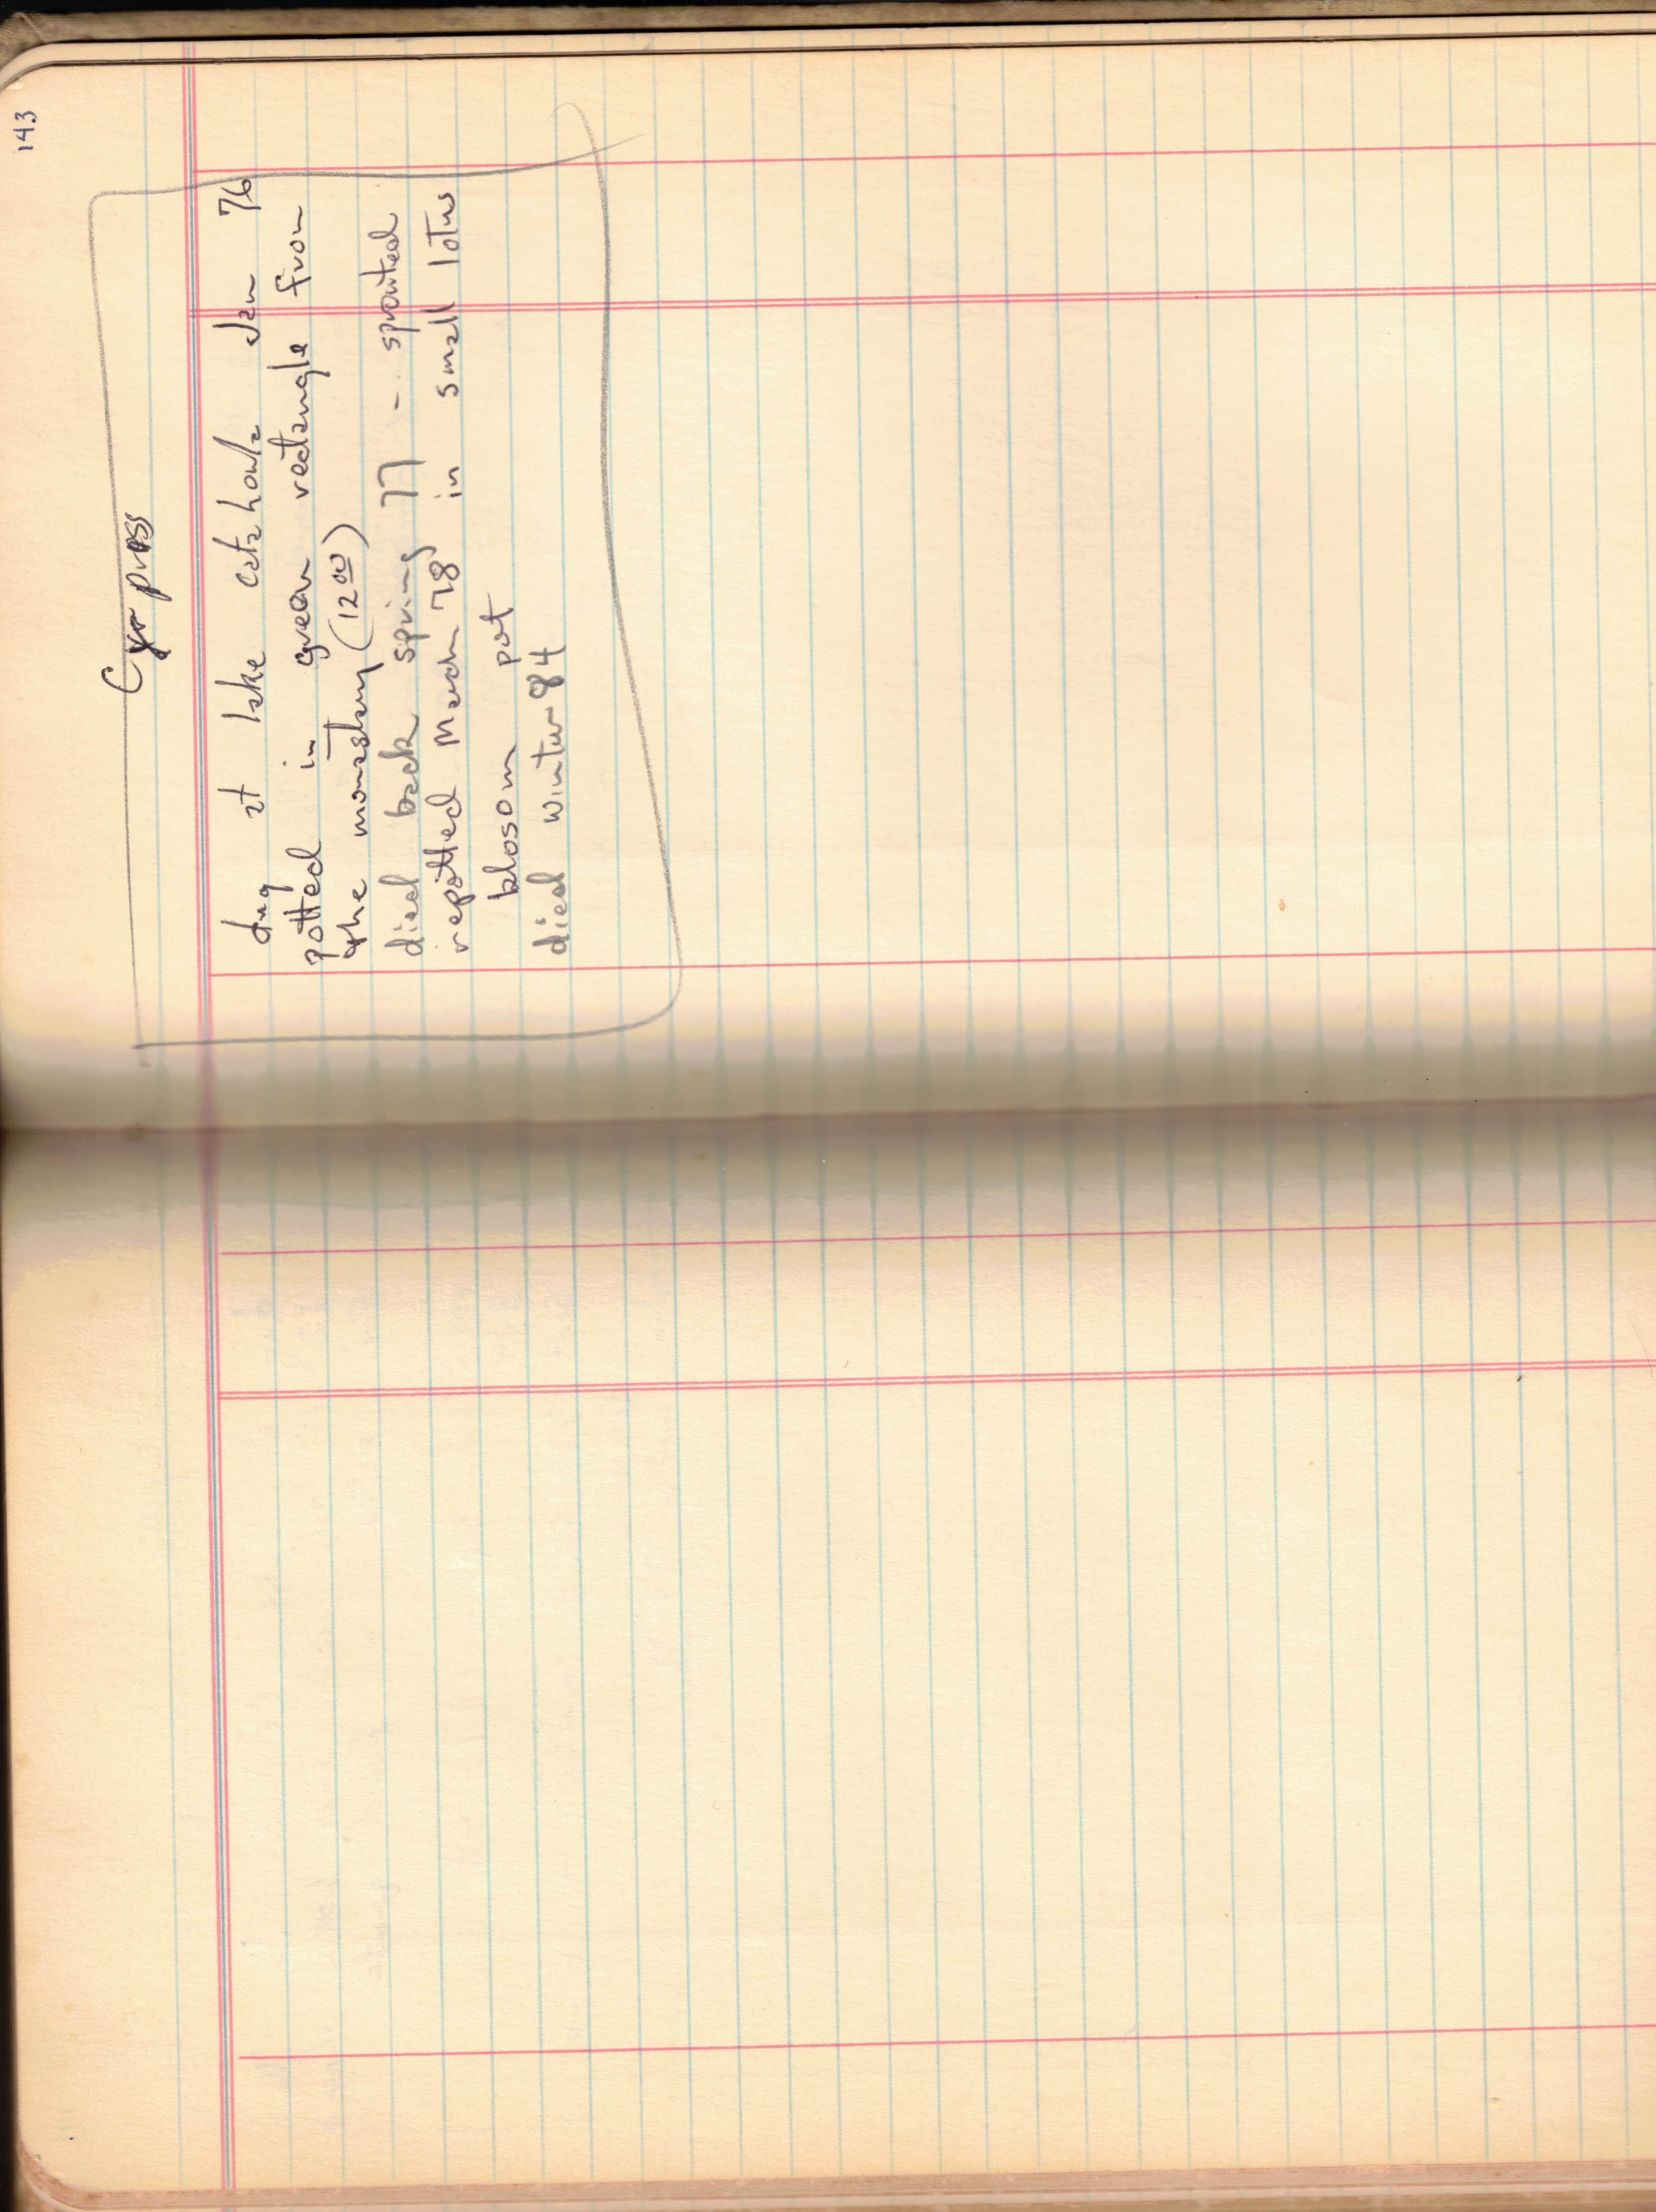 143
Cyr press
dug at lake catahoula Jan 76
potted in green rectangle from
the monastary (12 00)
died back spring 77 - sprouted
repotted March 78 in small lotus
blosom pot
died winter 84